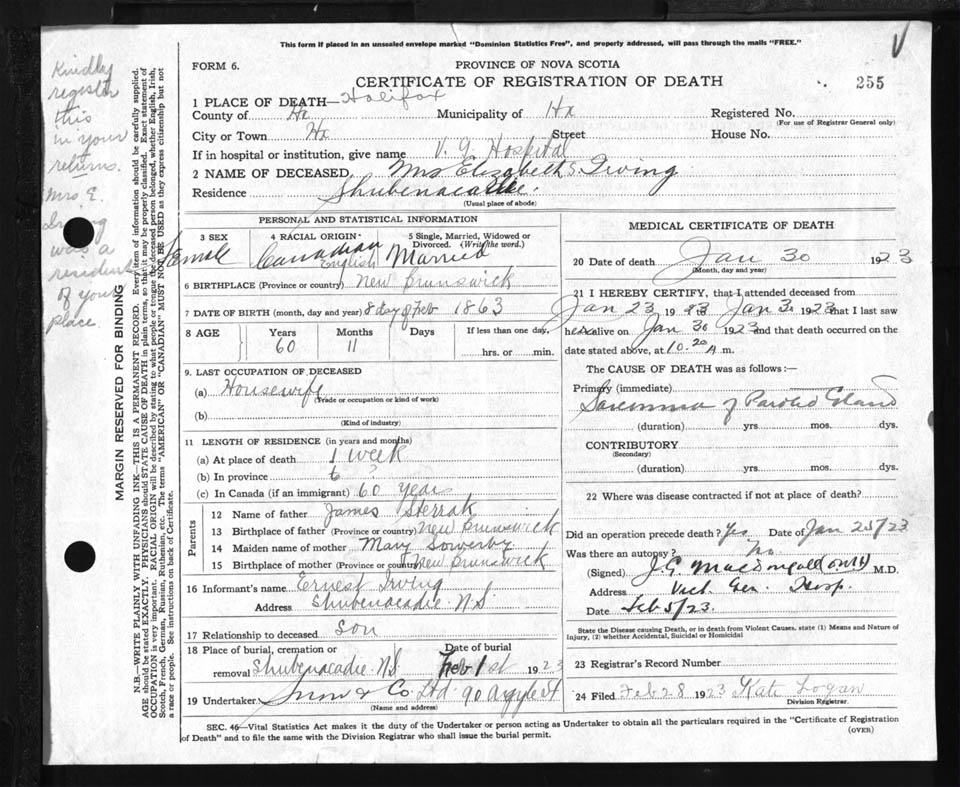 This form if placed in an unsealed envelope marked "Dominion Statistics Free", and properly addressed, will pass through the mails "FREE."
FORM 6.
PROVINCE OF NOVA SCOTIA
CERTIFICATE OF REGISTRATION OF DEATH
255
1 PLACE OF DEATH— Halifax
County of Hx Municipality of Hx Registered No.
(For use of Registrar General only)
City or Town Hx Street House No.
If in hospital or institution, give name V. G. Hospital
2 NAME OF DECEASED, Mrs Elizabeth S. Irving
Residence Shubenacadie.
(Usual place of abode)
PERSONAL AND STATISTICAL INFORMATION
3 SEX 4 RACIAL ORIGIN 5 Single, Married, Widowed or
Divorced. (Write the word.)
Female Canadian English Married
6 BIRTHPLACE (Province or country) New Brunswick
7 DATE OF BIRTH (month, day and year) 8 day of Feb 1863
8 AGE Years Months Days If less than one day,
60 11 hrs. or min.
9. LAST OCCUPATION OF DECEASED
(a) Housewife
(Trade or occupation or kind of work)
(b)
(Kind of industry)
11 LENGTH OF RESIDENCE (in years and months)
(a) At place of death 1 week
(b) In province 6
(c) In Canada (if an immigrant) 60 years
Parents
12 Name of father James
13 Birthplace of father (Province or country) New Brunswick
14 Maiden name of mother Mary Sowersby
15 Birthplace of mother (Province or country) New Brunswick
16 Informant's name Ernest Irving
Address Shubenacadie N.S.
17 Relationship to deceased Son
18 Place of burial, cremation or Date of burial
removal Shubenacadie N.S. Feb 1st 1923
19 Undertaker Snow & Co Ltd 90 Argyle St
(Name and address)
MEDICAL CERTIFICATE OF DEATH
20 Date of death Jan 30 1923
(Month, day and year)
21 I HEREBY CERTIFY, that I attended deceased from
Jan 23 1923 to Jan 30 1923 that I last saw
her alive on Jan 30 1923 and that death occurred on
date stated above, at 10.20 A m.
The CAUSE OF DEATH was as follows:—
Primary (immediate)
of Parotid Gland
(duration) yrs. mos. dys.
CONTRIBUTORY
(Secondary)
(duration) yrs. mos. dys.
22 Where was disease contracted if not at place of death?
Did an operation precede death? Yes Date of Jan 25/23
Was there an autopsy? No
(Signed) J. G. MacDougall M.D.
Address Vict. Gen. Hosp.
Date Feb 5/23.
State the Disease causing Death, or in death from Violent Causes, state (1) Means and Nature of
Injury, (2) whether Accidental, Suicidal or Homicidal
23 Registrar's Record Number
24 Filed Feb 28 1923 Kate Logan
Division Registrar.
SEC. 46—Vital Statistics Act makes it the duty of the Undertaker or person acting as Undertaker to obtain all the particulars required in the "Certificate of Registration
of Death" and to file the same with the Division Registrar who shall issue the burial permit.
(OVER)
Kindly
register
this
in your
returns.
Mrs E.
Irving
was a
resident
of your
place.
MARGIN RESERVED FOR BINDING
N.B.—WRITE PLAINLY WITH UNFADING INK—THIS IS A PERMANENT RECORD. Every item of information should be carefully supplied.
AGE should be stated EXACTLY. PHYSICIANS should STATE CAUSE OF DEATH in plain terms, so that it may be properly classified. Exact statement of
OCCUPATION is very important. RACIAL ORIGIN will be described by stating to what people or tongue the deceased person belonged, whether English, Irish,
Scotch, French, German, Russian, Ruthenian, etc. The terms "AMERICAN" OR "CANADIAN" MUST NOT BE USED as they express citizenship but not
a race or people. See instructions on back of Certificate.